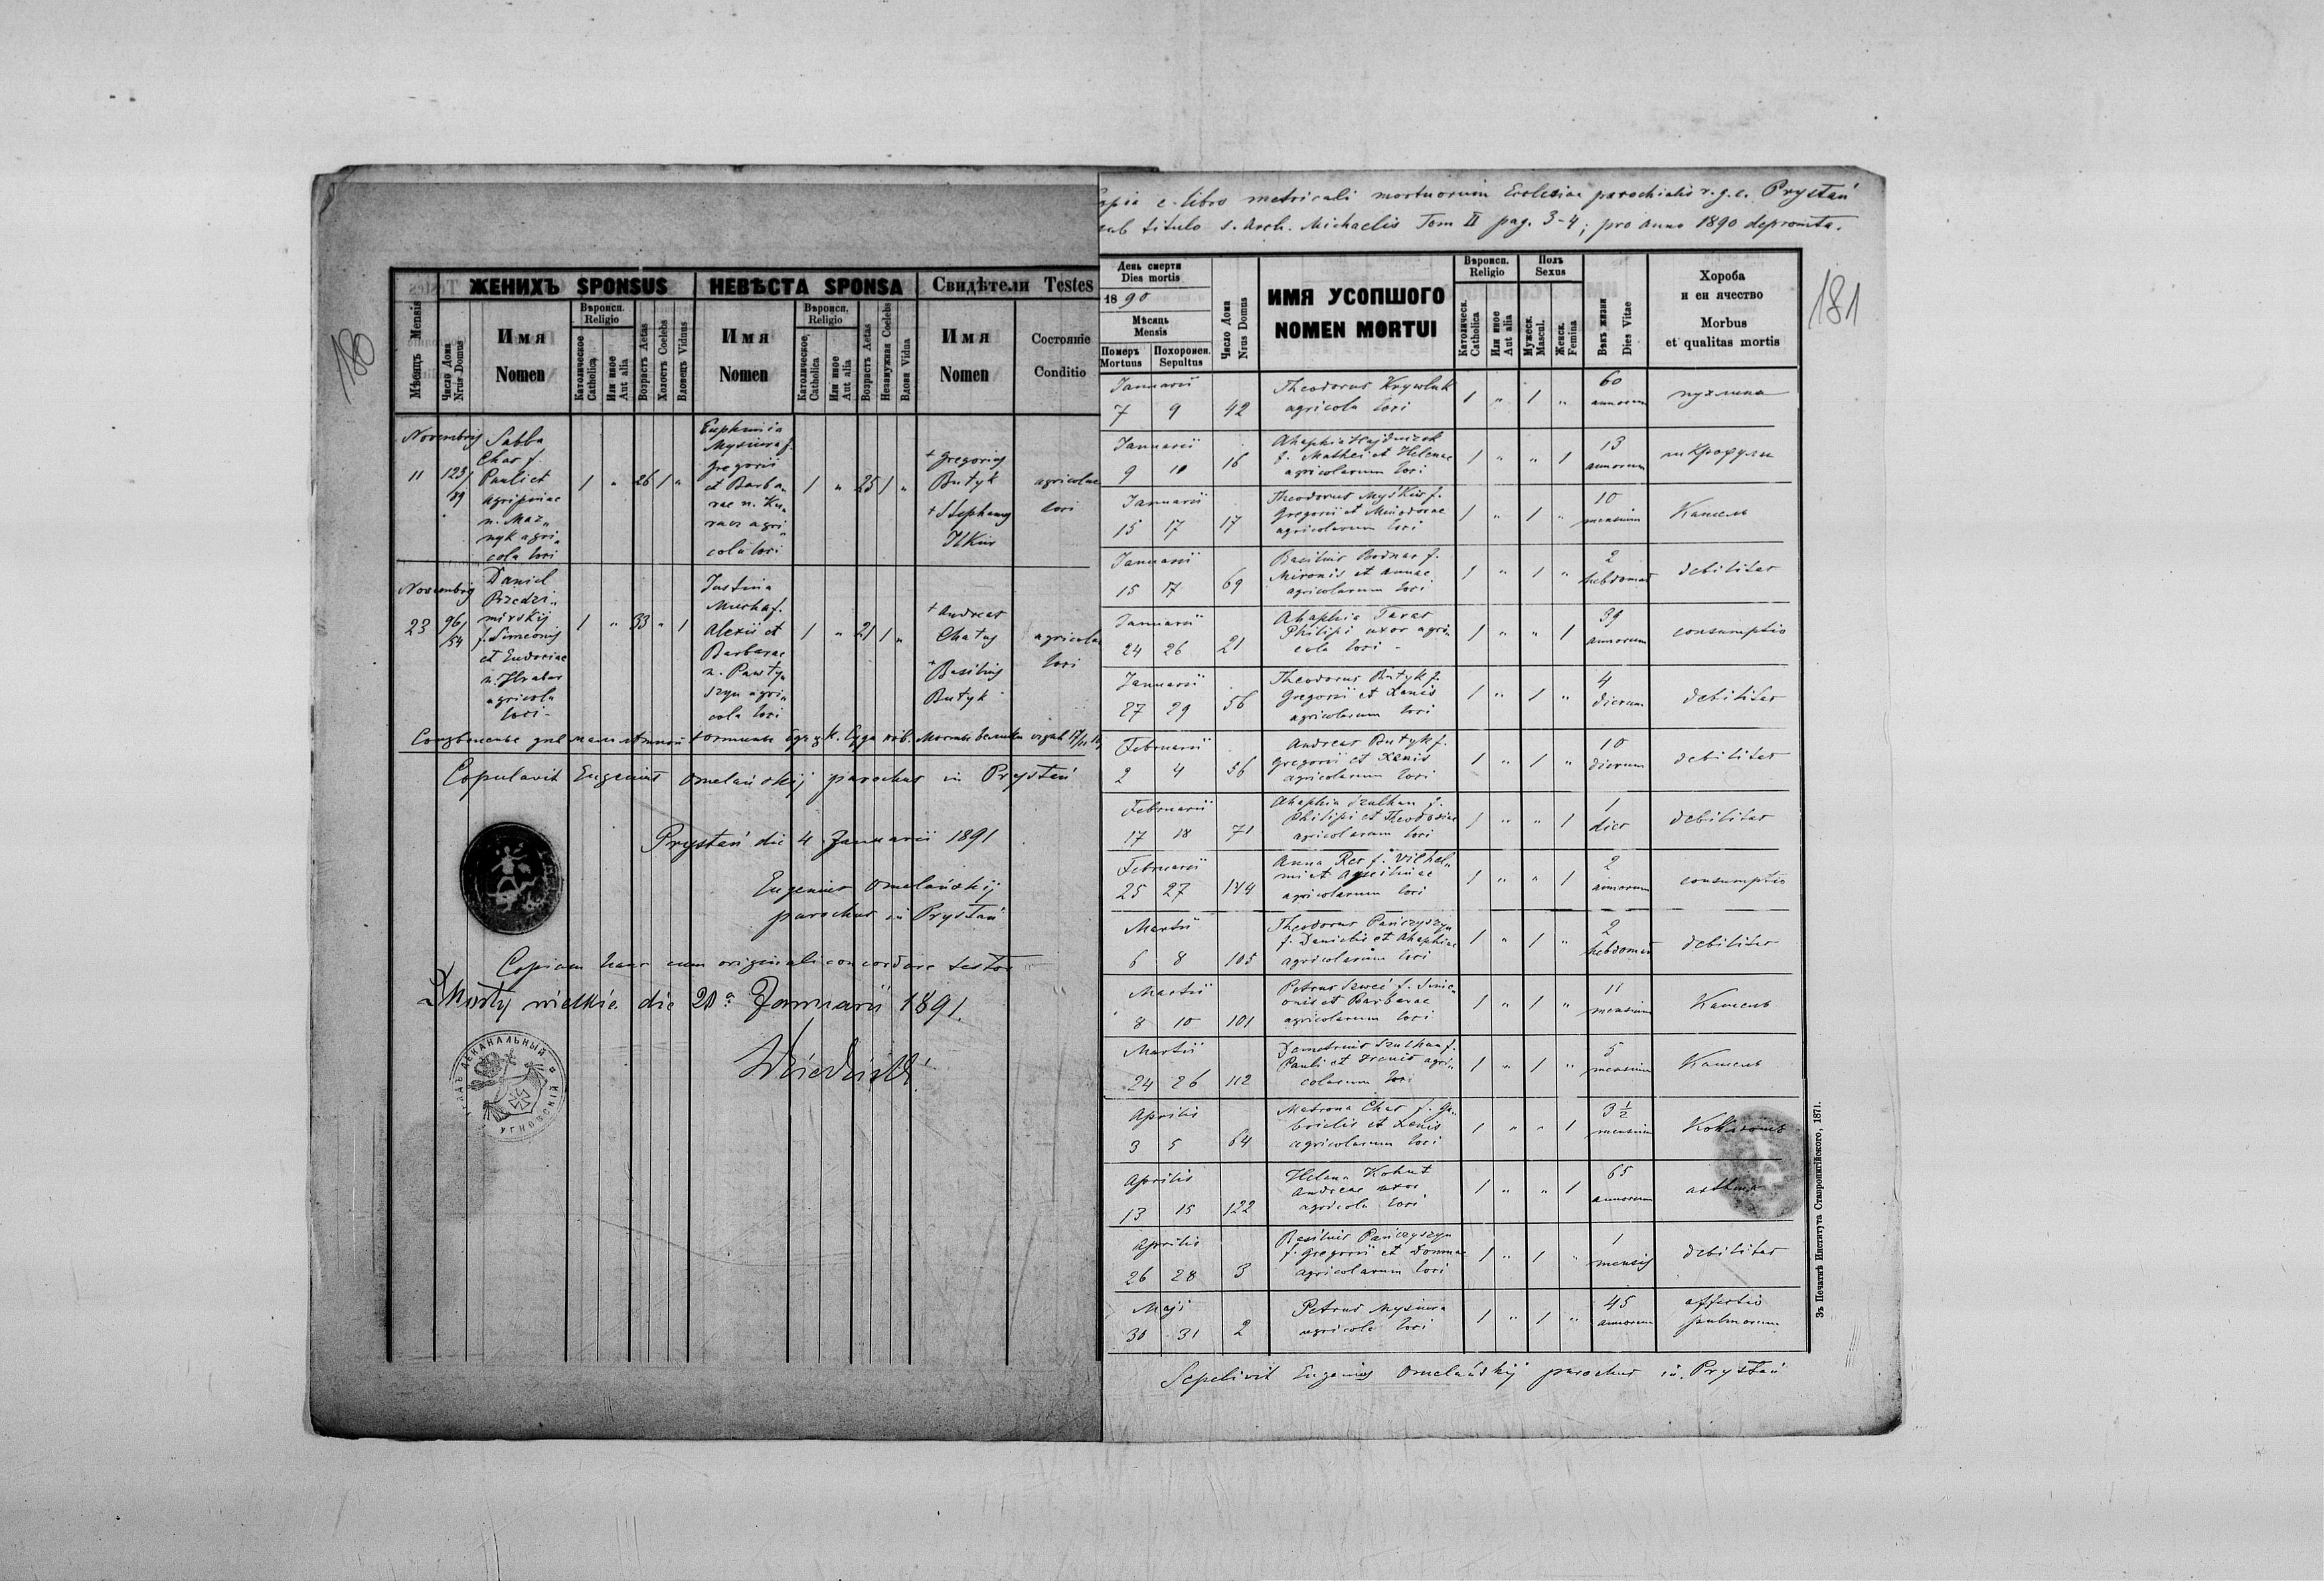 180
ЖЕНИХЪ SPONSUS
НЕВѢСТА SPONSA
Свидѣтели Testes
Мѣсяцъ Mensis
Число Дома Nrus Domus
Имя
Nomen
Вѣроисп. Religio
Католическое Catholica
Или иное Aut alia
Возрастъ Aetas
Холостъ Coelebs
Вдовецъ Viduus
Имя
Nomen
Вѣроисп. Religio
Католическое Catholica
Или иное Aut alia
Возрастъ Aetas
Незамужная Coelebs
Вдова Vidua
Имя
Nomen
Состояніе
Conditio
Novembris
11
123/89
Sabba
Char f.
Pauli et
agripinae
n. Maz„
nyk agri„
cola loci
1 „ 26 1 „
Euphemia
f.
Gregorii
et Barba„
rae n. Ku„
agri„
cola loci
1 „ 25 1 „
+ Gregorius
Butyk
+ Stephanus
Ilkiw
agricolae
loci
Novembris
23
96/54
Daniel
Przedzi„
mirskij
f. Simeonis
et Eudociae
n. Hralas
agricola
loci -
1 „ 33 „ 1
Justina
Mucha f.
Alexii et
Barbarae
n. Panty„
szyn agri„
cola loci
1 „ 21 1 „
+ Andreas
Chatys
+ Basilius
Butyk
agricolae
loci
Copulavit Eugenius Omelańskij parochus in Prystań
Prystań die 4 Januarii 1891
Eugenius Omelańskij
parochus in Prystań
Copiam hanc cum originali concordare testor
Mosty wielkie die 20a Januarii 1891.
ДЕКАНАЛЬНЫЙ
181
Copia e libro metricali mortuorum Ecclesiae parochialis r. g. c. Prystań
sub titulo s. Arch. Michaelis Tom II pag. 3-4; pro anno 1890 depromta.
День смерти
Dies mortis
1890
Мѣсяць
Mensis
Померъ Mortuus
Похоронен. Sepultus
Число Дома Nrus Domus
ИМЯ УСОПШОГО
NOMEN MORTUI
Вѣроисп. Religio
Католическ. Catholica
Или иное Aut alia
Полъ Sexus
Мужеск. Mascul.
Женск. Femina
Вѣкъ жизни Dies Vitae
Хороба
и еи ячество
Morbus
et qualitas mortis
Januarii
7 9 42
Theodorus Krywluk
agricola loci
1 „ 1 „
60
annorum
пухлина
Januarii
9 10 16
Ahaphia Hajduczok
f. Mathei et Helenae
agricolarum loci
1 „ „ 1
13
annorum
шкрофули
Januarii
15 17 17
Theodorus Myśkiw f.
Gregorii et Minodorae
agricolarum loci
1 „ 1 „
10
mensium
Кашель
Januarii
15 17 69
Basilius Bodnar f.
Mironis et Annae
agricolarum loci
1 „ 1 „
2
hebdomas
debilitas
Januarii
24 26 21
Ahaphia Taras
Philipi uxor agri„
cola loci -
1 „ „ 1
39
annorum
consumptio
Januarii
27 29 56
Theodorus Butyk f.
Gregorii et Xenis
agricolarum loci
1 „ 1 „
4
dierum
debilitas
Februarii
2 4 56
Andreas Butyk f.
Gregorii et Xenis
agricolarum loci
1 „ 1 „
10
dierum
debilitas
Februarii
17 18 71
Ahaphia Szulhan f.
Philipi et Theodosiae
agricolarum loci
1 „ „ 1
1
dies
debilitas
Februarii
25 27 144
Anna Res f. Vilhel„
mi et
agricolarum loci
1 „ „ 1
2
annorum
consumptio
Martii
6 8 105
Theodorus Pańczyszyn
f. Danielis et Ahaphiae
agricolarum loci
1 „ 1 „
2
hebdomas
debilitas
Martii
8 10 101
Petrus Szweć f. Sime„
onis et Barbarae
agricolarum loci
1 „ 1 „
11
mensium
Кашель
Martii
24 26 112
Demetrius Szulhan f.
Pauli et Irenis agri„
colarum loci
1 „ 1 „
5
mensium
Кашель
Aprilis
3 5 64
Matrona Char f. Ga„
brielis et Xenis
agricolarum loci
1 „ „ 1
3 1/2
mensium
Aprilis
13 15 122
Helena Kohut
Andreae uxor
agricola loci
1 „ „ 1
65
annorum
asthma
Aprilis
26 28 3
Basilius Pańczyszyn
f. Gregorii et Domnae
agricolarum loci
1 „ 1 „
1
mensis
debilitas
Maji
30 31 2
Petrus
agricola loci
1 „ 1 „
45
annorum
affectio
pulmonum
Sepelivit Eugenius Omelańskij parochus in Prystań
Зъ Печатнѣ Института Ставропигійского, 1871.